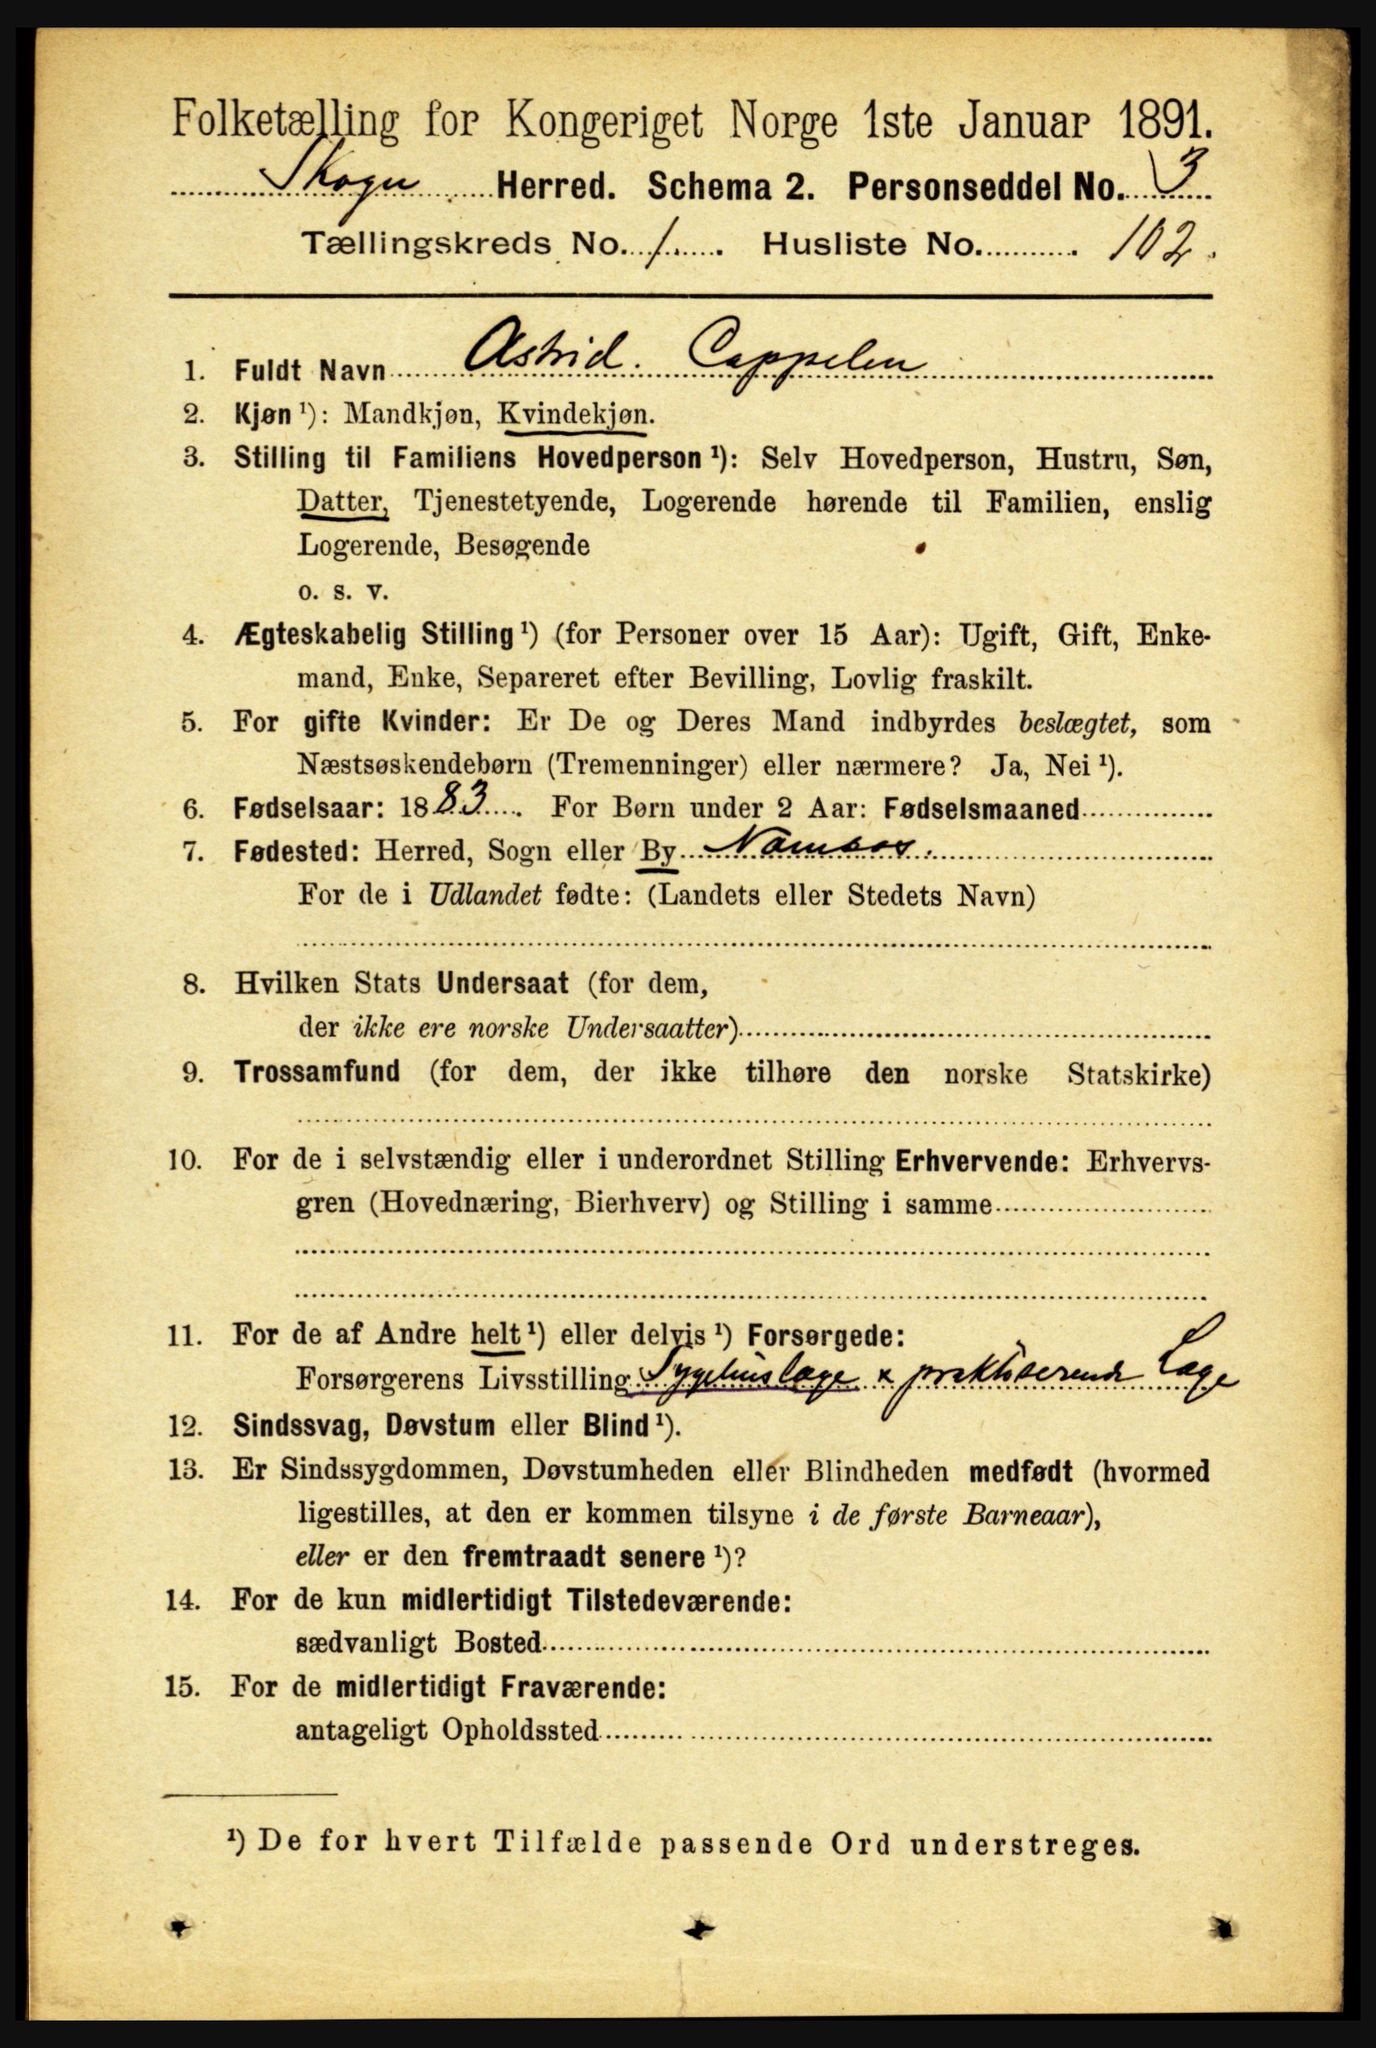 Folketælling for Kongeriget Norge 1ste Januar 1891.
Skogn Herred. Schema 2. Personseddel No. 3
Tællingskreds No. 1. Husliste No. 102.
1. Fuldt Navn Astrid. Cappelen
2. Kjøn ¹): Mandkjøn, Kvindekjøn.
3. Stilling til Familiens Hovedperson ¹): Selv Hovedperson, Hustru, Søn,
Datter, Tjenestetyende, Logerende hørende til Familien, enslig
Logerende, Besøgende
o. s. v.
4. Ægteskabelig Stilling ¹) (for Personer over 15 Aar): Ugift, Gift, Enke-
mand, Enke, Separeret efter Bevilling, Lovlig fraskilt.
5. For gifte Kvinder: Er De og Deres Mand indbyrdes beslægtet, som
Næstsøskendebørn (Tremenninger) eller nærmere? Ja, Nei ¹).
6. Fødselsaar: 1883. For Børn under 2 Aar: Fødselsmaaned
7. Fødested: Herred, Sogn eller By Namsos.
For de i Udlandet fødte: (Landets eller Stedets Navn)
8. Hvilken Stats Undersaat (for dem,
der ikke ere norske Undersaatter)
9. Trossamfund (for dem, der ikke tilhøre den norske Statskirke)
10. For de i selvstændig eller i underordnet Stilling Erhvervende: Erhvervs-
gren (Hovednæring, Bierhverv) og Stilling i samme
11. For de af Andre helt ¹) eller delvis ¹) Forsørgede:
Forsørgerens Livsstilling Sygehuslæge x praktiserende Læge
12. Sindssvag, Døvstum eller Blind ¹).
13. Er Sindssygdommen, Døvstumheden eller Blindheden medfødt (hvormed
ligestilles, at den er kommen tilsyne i de første Barneaar),
eller er den fremtraadt senere ¹)?
14. For de kun midlertidigt Tilstedeværende:
sædvanligt Bosted
15. For de midlertidigt Fraværende:
antageligt Opholdssted
¹) De for hvert Tilfælde passende Ord understreges.